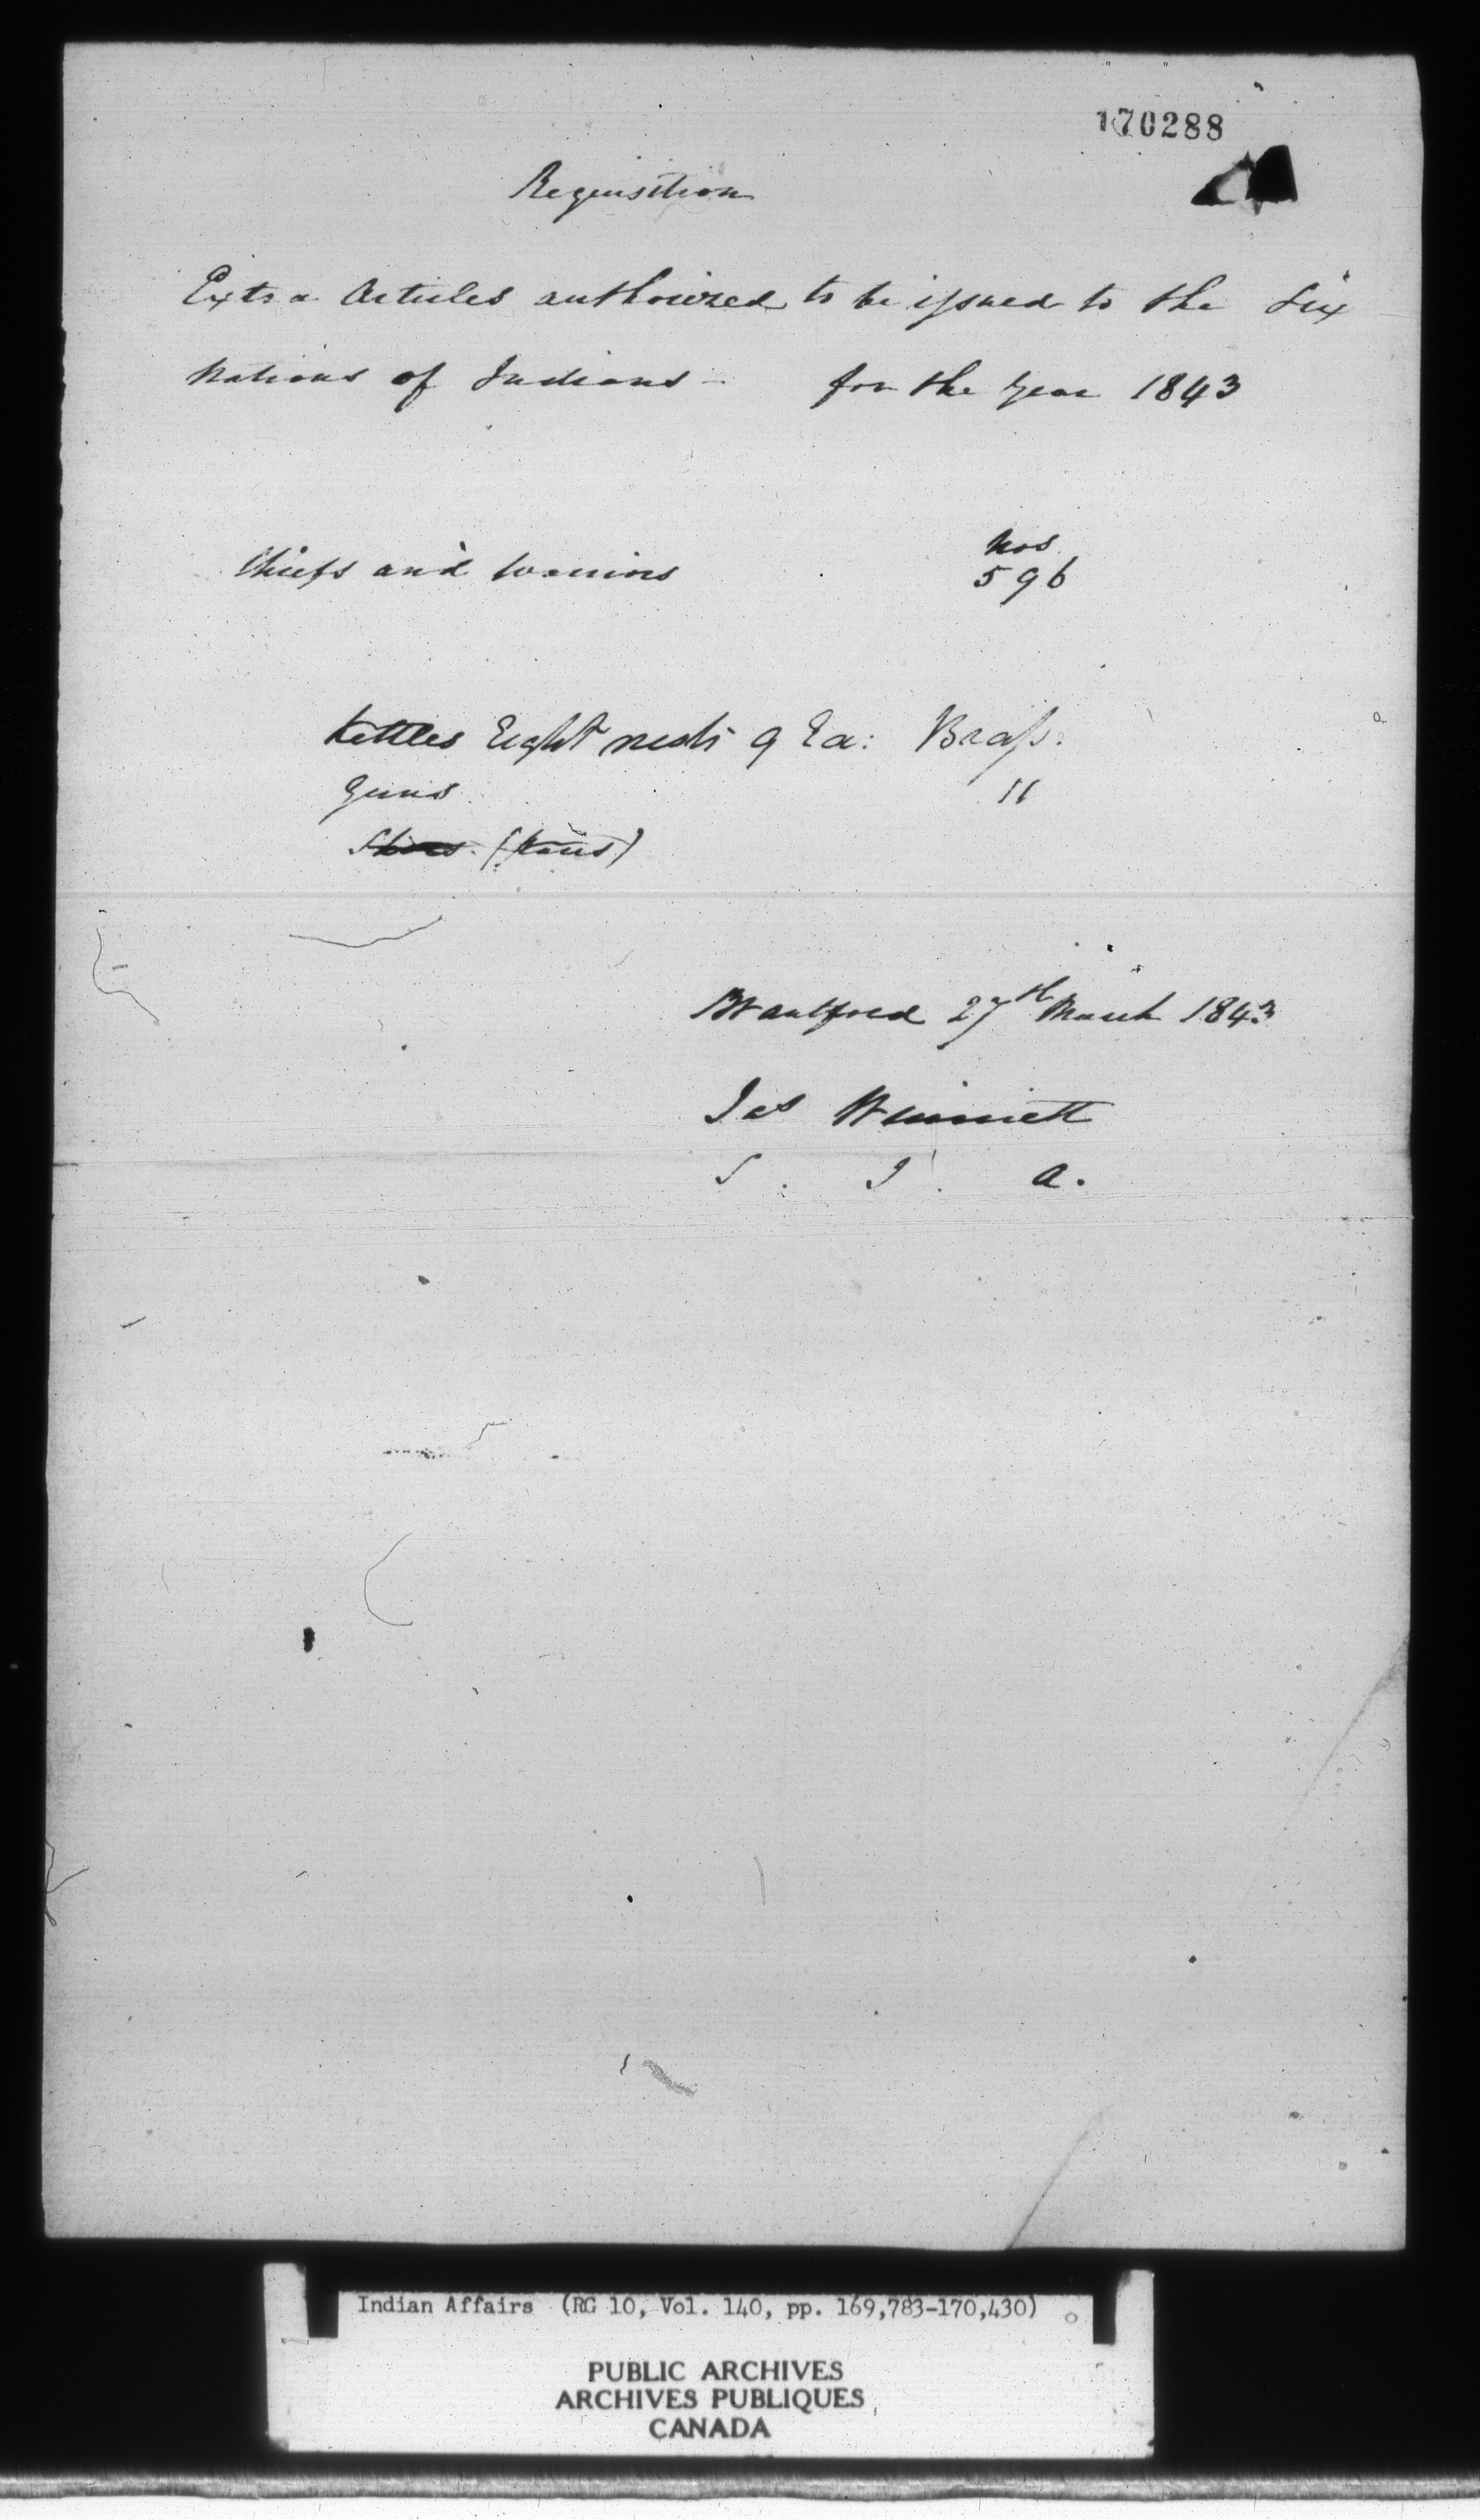 170288
Requisition
Extra Articles authorized to be issued to the Six
Nations of Indians - for the year 1843
Nos
Chiefs and Warriors 596
Kettles Eight nests 9 Ea: Brass.
Guns 11
Brantford 27th March 1843
Jas Winniett
S. I. A.
Indian Affairs (RG 10, Vol. 140, pp. 169,783-170,430)
PUBLIC ARCHIVES
ARCHIVES PUBLIQUES
CANADA